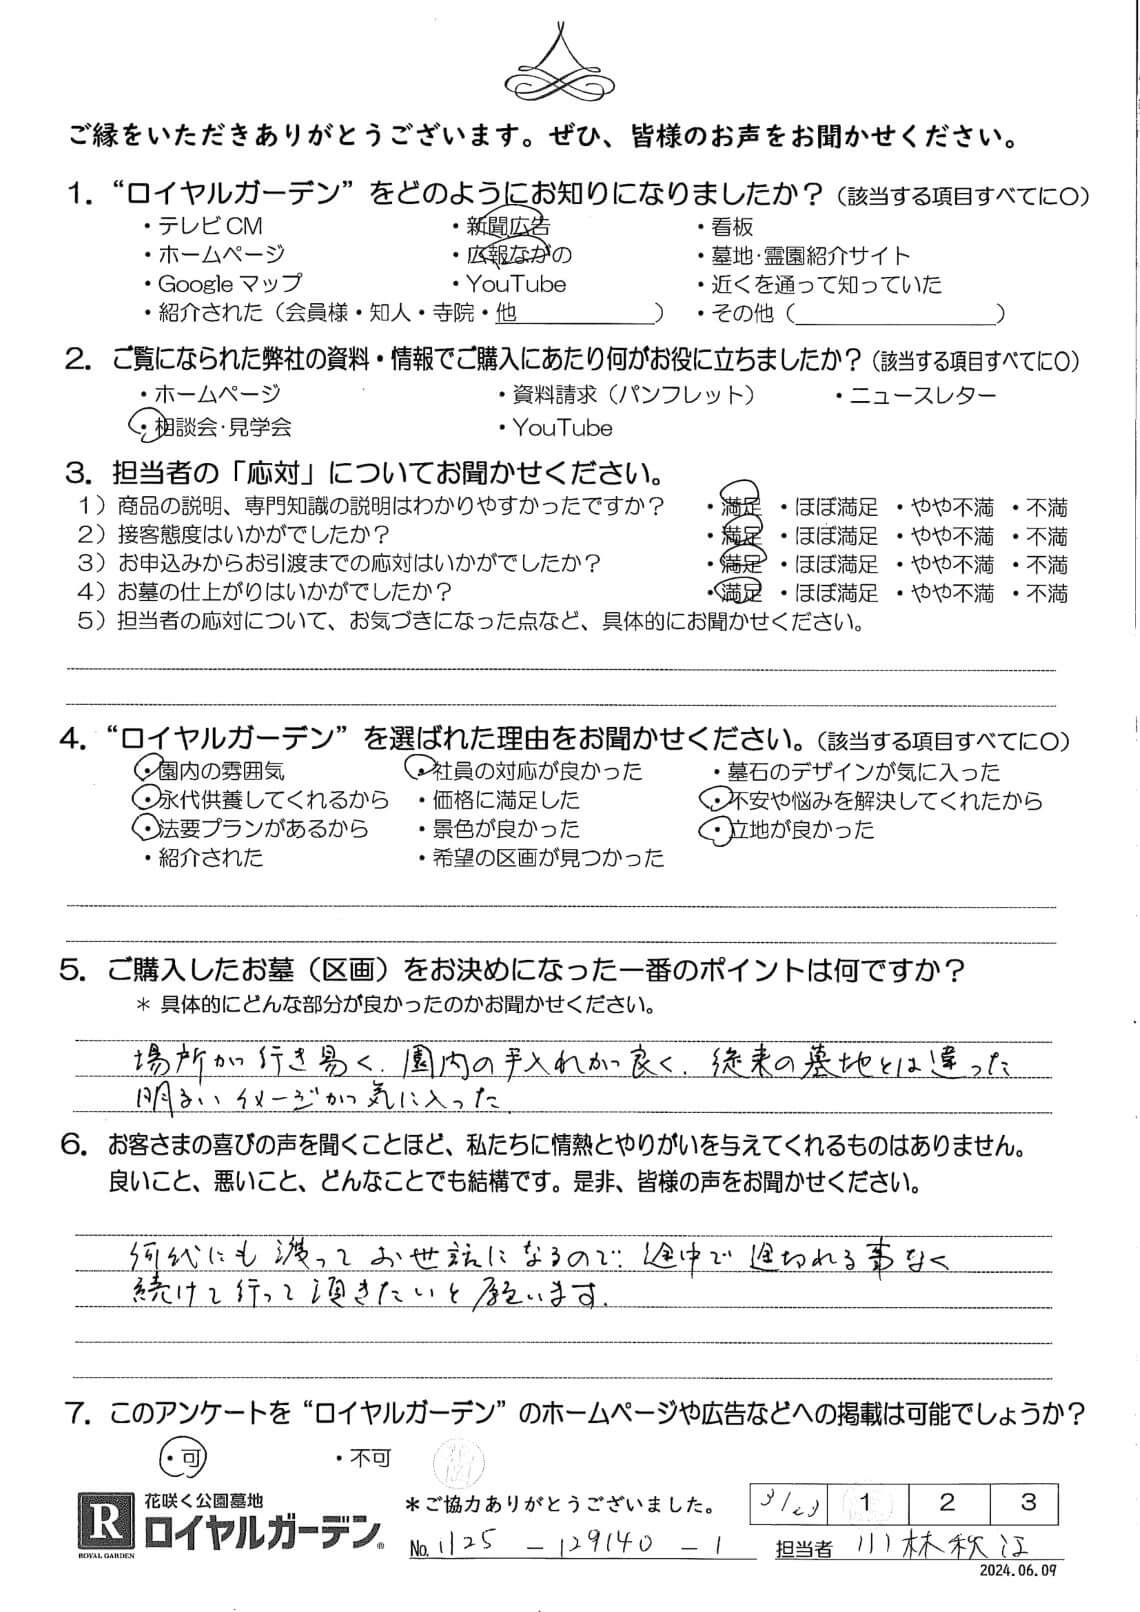 ご縁をいただきありがとうございます。ぜひ、皆様のお声をお聞かせください。
1. “ロイヤルガーデン”をどのようにお知りになりましたか？（該当する項目すべてに○）
・テレビCM ・新聞広告 ・看板
・ホームページ ・広報ながの ・墓地・霊園紹介サイト
・Googleマップ ・YouTube ・近くを通って知っていた
・紹介された（会員様・知人・寺院・他　　　　） ・その他（　　　　　）
2. ご覧になられた弊社の資料・情報でご購入にあたり何がお役に立ちましたか？（該当する項目すべてに○）
・ホームページ ・資料請求（パンフレット） ・ニュースレター
・相談会・見学会 ・YouTube
3. 担当者の「応対」についてお聞かせください。
1）商品の説明、専門知識の説明はわかりやすかったですか？ ・満足 ・ほぼ満足 ・やや不満 ・不満
2）接客態度はいかがでしたか？ ・満足 ・ほぼ満足 ・やや不満 ・不満
3）お申込みからお引渡までの応対はいかがでしたか？ ・満足 ・ほぼ満足 ・やや不満 ・不満
4）お墓の仕上がりはいかがでしたか？ ・満足 ・ほぼ満足 ・やや不満 ・不満
5）担当者の応対について、お気づきになった点など、具体的にお聞かせください。
4. “ロイヤルガーデン”を選ばれた理由をお聞かせください。（該当する項目すべてに○）
・園内の雰囲気 ・社員の対応が良かった ・墓石のデザインが気に入った
・永代供養してくれるから ・価格に満足した ・不安や悩みを解決してくれたから
・法要プランがあるから ・景色が良かった ・立地が良かった
・紹介された ・希望の区画が見つかった
5. ご購入したお墓（区画）をお決めになった一番のポイントは何ですか？
＊具体的にどんな部分が良かったのかお聞かせください。
場所が行き易く、園内の手入れが良く、従来の墓地とは違った
明るいイメージが気に入った
6. お客さまの喜びの声を聞くことほど、私たちに情熱とやりがいを与えてくれるものはありません。
良いこと、悪いこと、どんなことでも結構です。是非、皆様の声をお聞かせください。
何代にも渡ってお世話になるので、途中で途切れる事なく
続けて行って頂きたいと願います。
7. このアンケートを“ロイヤルガーデン”のホームページや広告などへの掲載は可能でしょうか？
・可 ・不可
R ROYAL GARDEN
花咲く公園墓地
ロイヤルガーデン®
＊ご協力ありがとうございました。 1 2 3
No. 1125 － 129140 － 1 担当者 小林秋江
2024.06.09